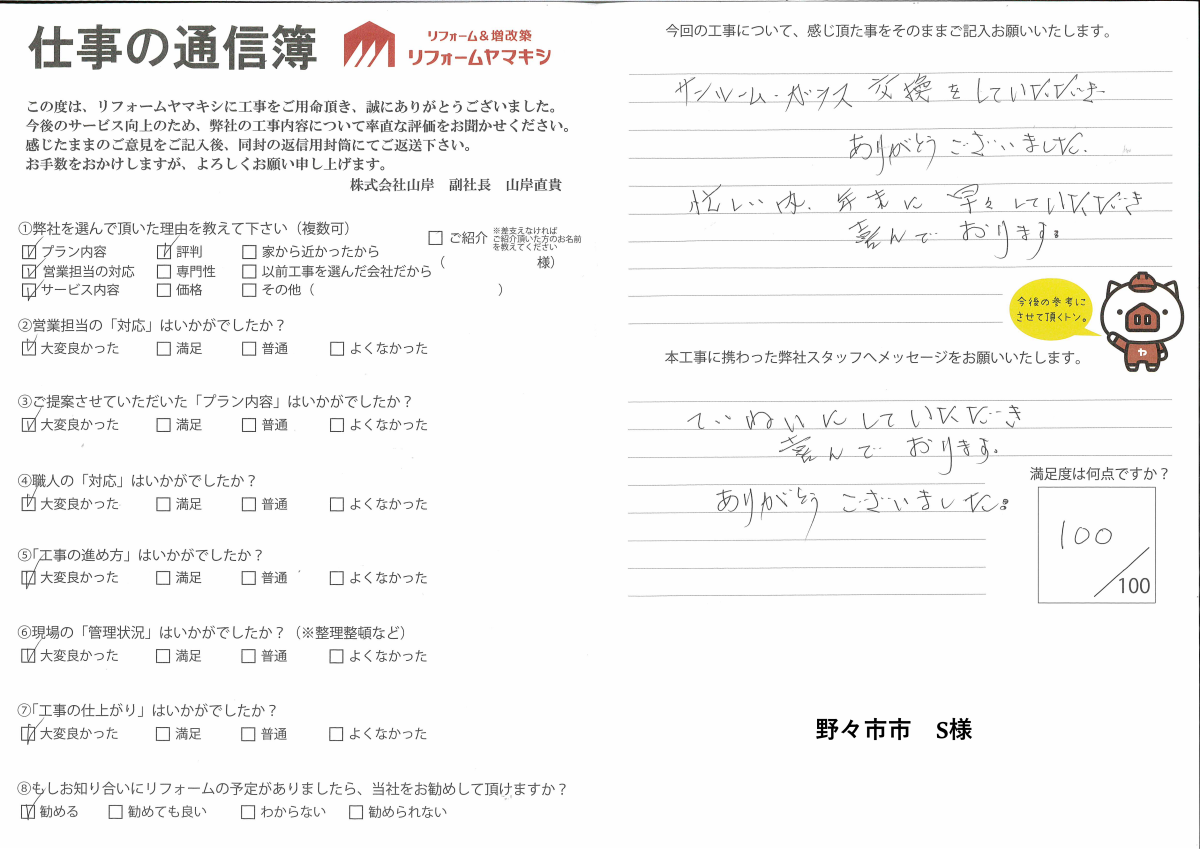 仕事の通信簿
リフォーム&増改築
リフォームヤマキシ
この度は、リフォームヤマキシに工事をご用命頂き、誠にありがとうございました。
今後のサービス向上のため、弊社の工事内容について率直な評価をお聞かせください。
感じたままのご意見をご記入後、同封の返信用封筒にてご返送下さい。
お手数をおかけしますが、よろしくお願い申し上げます。
株式会社山岸　副社長　山岸直貴
①弊社を選んで頂いた理由を教えて下さい（複数可）
プラン内容 評判 家から近かったから
営業担当の対応 専門性 以前工事を選んだ会社だから
サービス内容 価格 その他（　　　　）
ご紹介 ※差支えなければ
ご紹介頂いた方のお名前
を教えてください
（　　　　様）
②営業担当の「対応」はいかがでしたか？
大変良かった 満足 普通 よくなかった
③ご提案させていただいた「プラン内容」はいかがでしたか？
大変良かった 満足 普通 よくなかった
④職人の「対応」はいかがでしたか？
大変良かった 満足 普通 よくなかった
⑤「工事の進め方」はいかがでしたか？
大変良かった 満足 普通 よくなかった
⑥現場の「管理状況」はいかがでしたか？（※整理整頓など）
大変良かった 満足 普通 よくなかった
⑦「工事の仕上がり」はいかがでしたか？
大変良かった 満足 普通 よくなかった
⑧もしお知り合いにリフォームの予定がありましたら、当社をお勧めして頂けますか？
勧める 勧めても良い わからない 勧められない
今回の工事について、感じ頂た事をそのままご記入お願いいたします。
サンルーム・ガラス 交換をしていただき
ありがとうございました.
忙しい内、年末に 早々していただき
喜んで おります。
今後の参考に
させて頂くトン。
ヤ
本工事に携わった弊社スタッフへメッセージをお願いいたします。
ていねいにしていただき
喜んで おります。
ありがとう ございました。
満足度は何点ですか？
100
/100
野々市市　S様